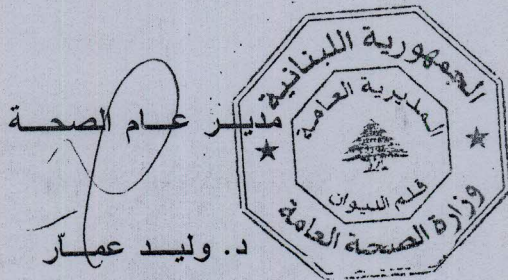 الجمهورية اللبنانية
المديرية العامة
قلم الديوان
وزارة الصحة العامة
مديـر عــام الصحــة
د. وليـد عمـار